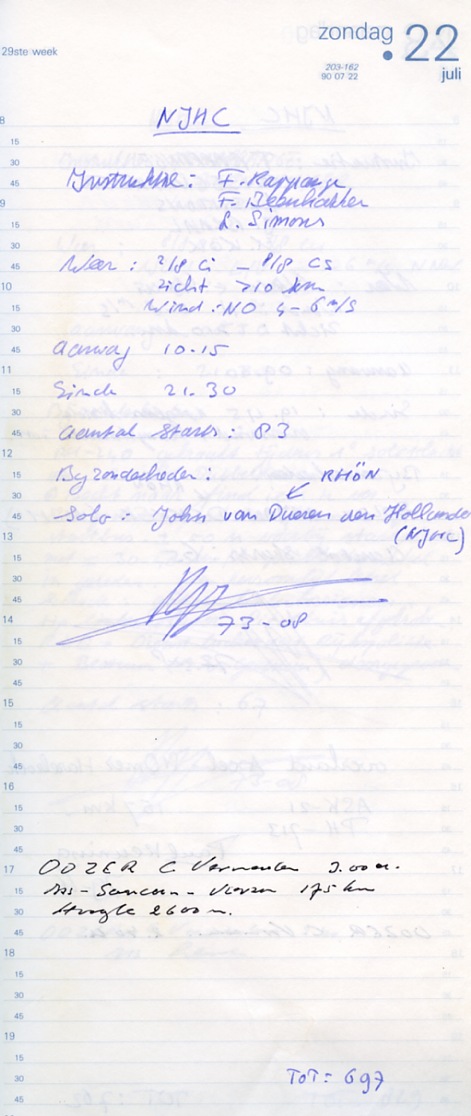 zondag 22
29ste week
203-162
90 07 22
juli
NJHC
8
15
30
45
9
15
30
45
10
15
30
45
11
15
30
45
12
15
30
45
13
15
30
45
14
15
30
45
15
15
30
45
16
15
30
45
17
15
30
45
18
15
30
45
19
15
30
45
F. Rappange
F.
L. Simons
Weer : 2/8 Ci — 8/8 CS
zicht >10 km
Wind : NO 4-6 m/s
aanvag 10.15
Einde 21.30
aantal starts : 83
Byzonderheden :
RHÖN
Solo : John van Dueren den Hollander
(NJHC)
73-08
OOZER C. Vermeulen
Sancerre - Vierzon 175 km
Hoogte 2600 m.
TOT = 697